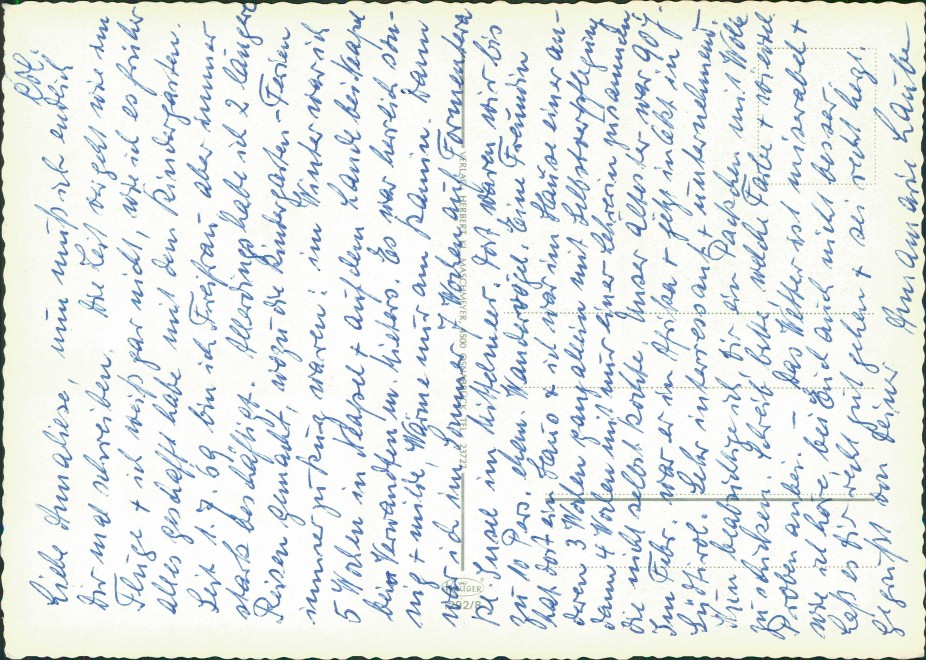 Liebe Annaliese! nun muß ich endlich
Dir mal schreiben. Die Zeit vergeht wie im
Fluge + ich weiß gar nicht, wie ich es früher
alles geschafft habe mit dem Kindergarten.
Seit 1.7.69 bin ich Freifrau aber immer
stark beschäftigt. Allerdings habe ich 2 längere
Reisen gemacht, wozu die Kindergarten-Ferien
immer zu kurz waren! im Winter war ich
5 Wochen in Neapel + auf dem Lande bei
Verwandten Es war herrlich son-
nig + milde, Wärme nur am Kamin. Dann
war ich im Sommer 7 Wochen auf Formentera
Insel im Mittelmeer. Dort waren wir bis
zu 10 Pers. ehem. Wandervögel. Eine Freundin
hat dort ein Haus + ich war im Hause einer an-
deren 3 Wochen ganz allein mit Selbstverpflegung
dann 4 Wochen mit nur einer Lehrerin zusammen,
die nicht selbst kochte. Unser ältester war 90 J.
Im Febr. war er in Afrika + jetzt lebt in
Südtirol. Sehr interressant + unternehmend-
Nun beabsichtige ich Dir ein Päckchen mit Wolle
zu schicken. Schreib bitte welche Farbe + wieviel
Proben anbei. – Das Wetter ist miserabel +
wie ich höre bei Euch auch nicht besser
Laß es Dir recht gut gehen + sei recht herzl.
gegrüßt von Deiner Annamarie Laube
VERLAG HERBERT H. MASCHMEYER, 4500 OSNABRÜCK, TEL. 23723
KRÜGER
1292/8